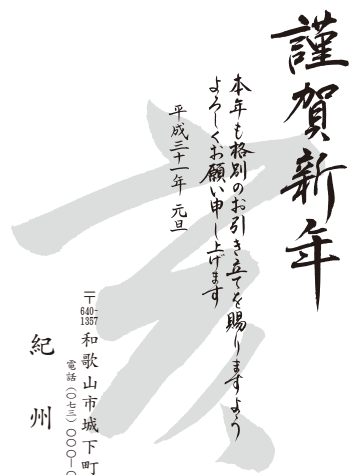 謹賀新年
本年も格別のお引き立てを賜りますよう
よろしくお願い申し上げます
平成三十一年 元旦
亥
〒640-1357
和歌山市城下町
電話(〇七三)〇〇〇ー〇
紀州